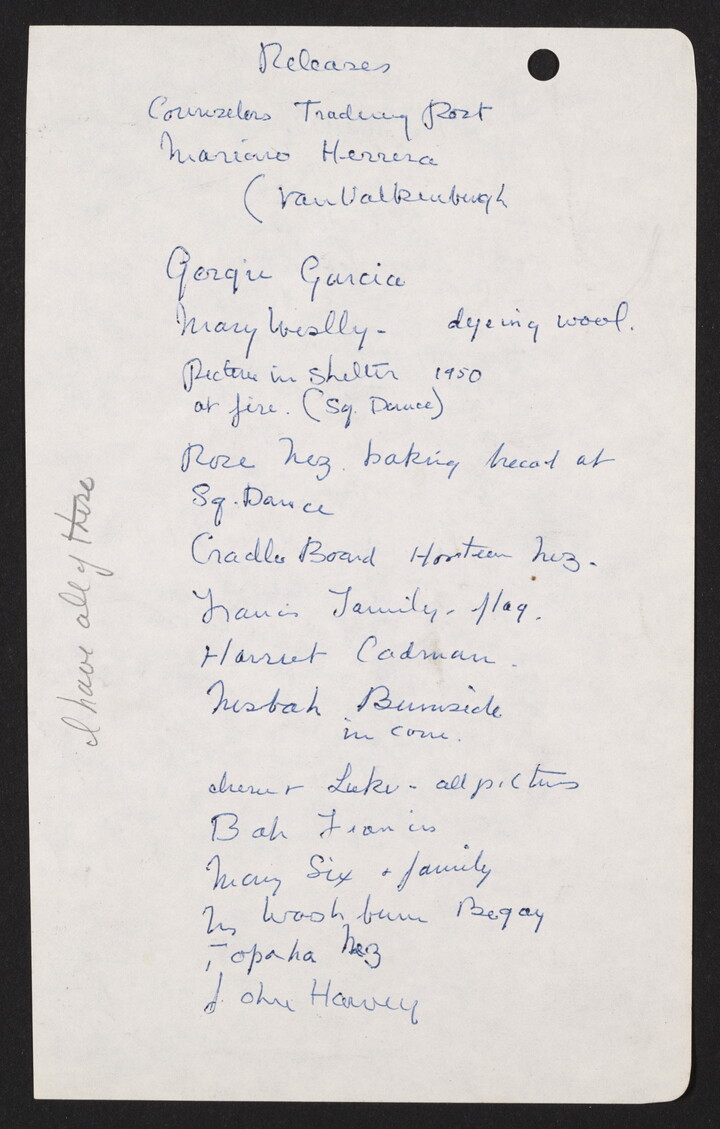 Releases
Counselors Trading Post
Mariano Herrera
(Van Valkenburgh
Georgie Garcia
Mary Weslly - dyeing wool.
Picture in shelter 1950
at fire. (Sq. Dance)
Rose Nez. baking bread at
Sq. Dance
Cradle Board Hosteen Nez.
Francis Family - flag.
Harriet Cadman.
Nesbah Burnside
in corn.
Luke - all pictures
Bah Francis
Mary Six + family
Washburn Begay
Topaha Nez
John Harvey
I have all of these